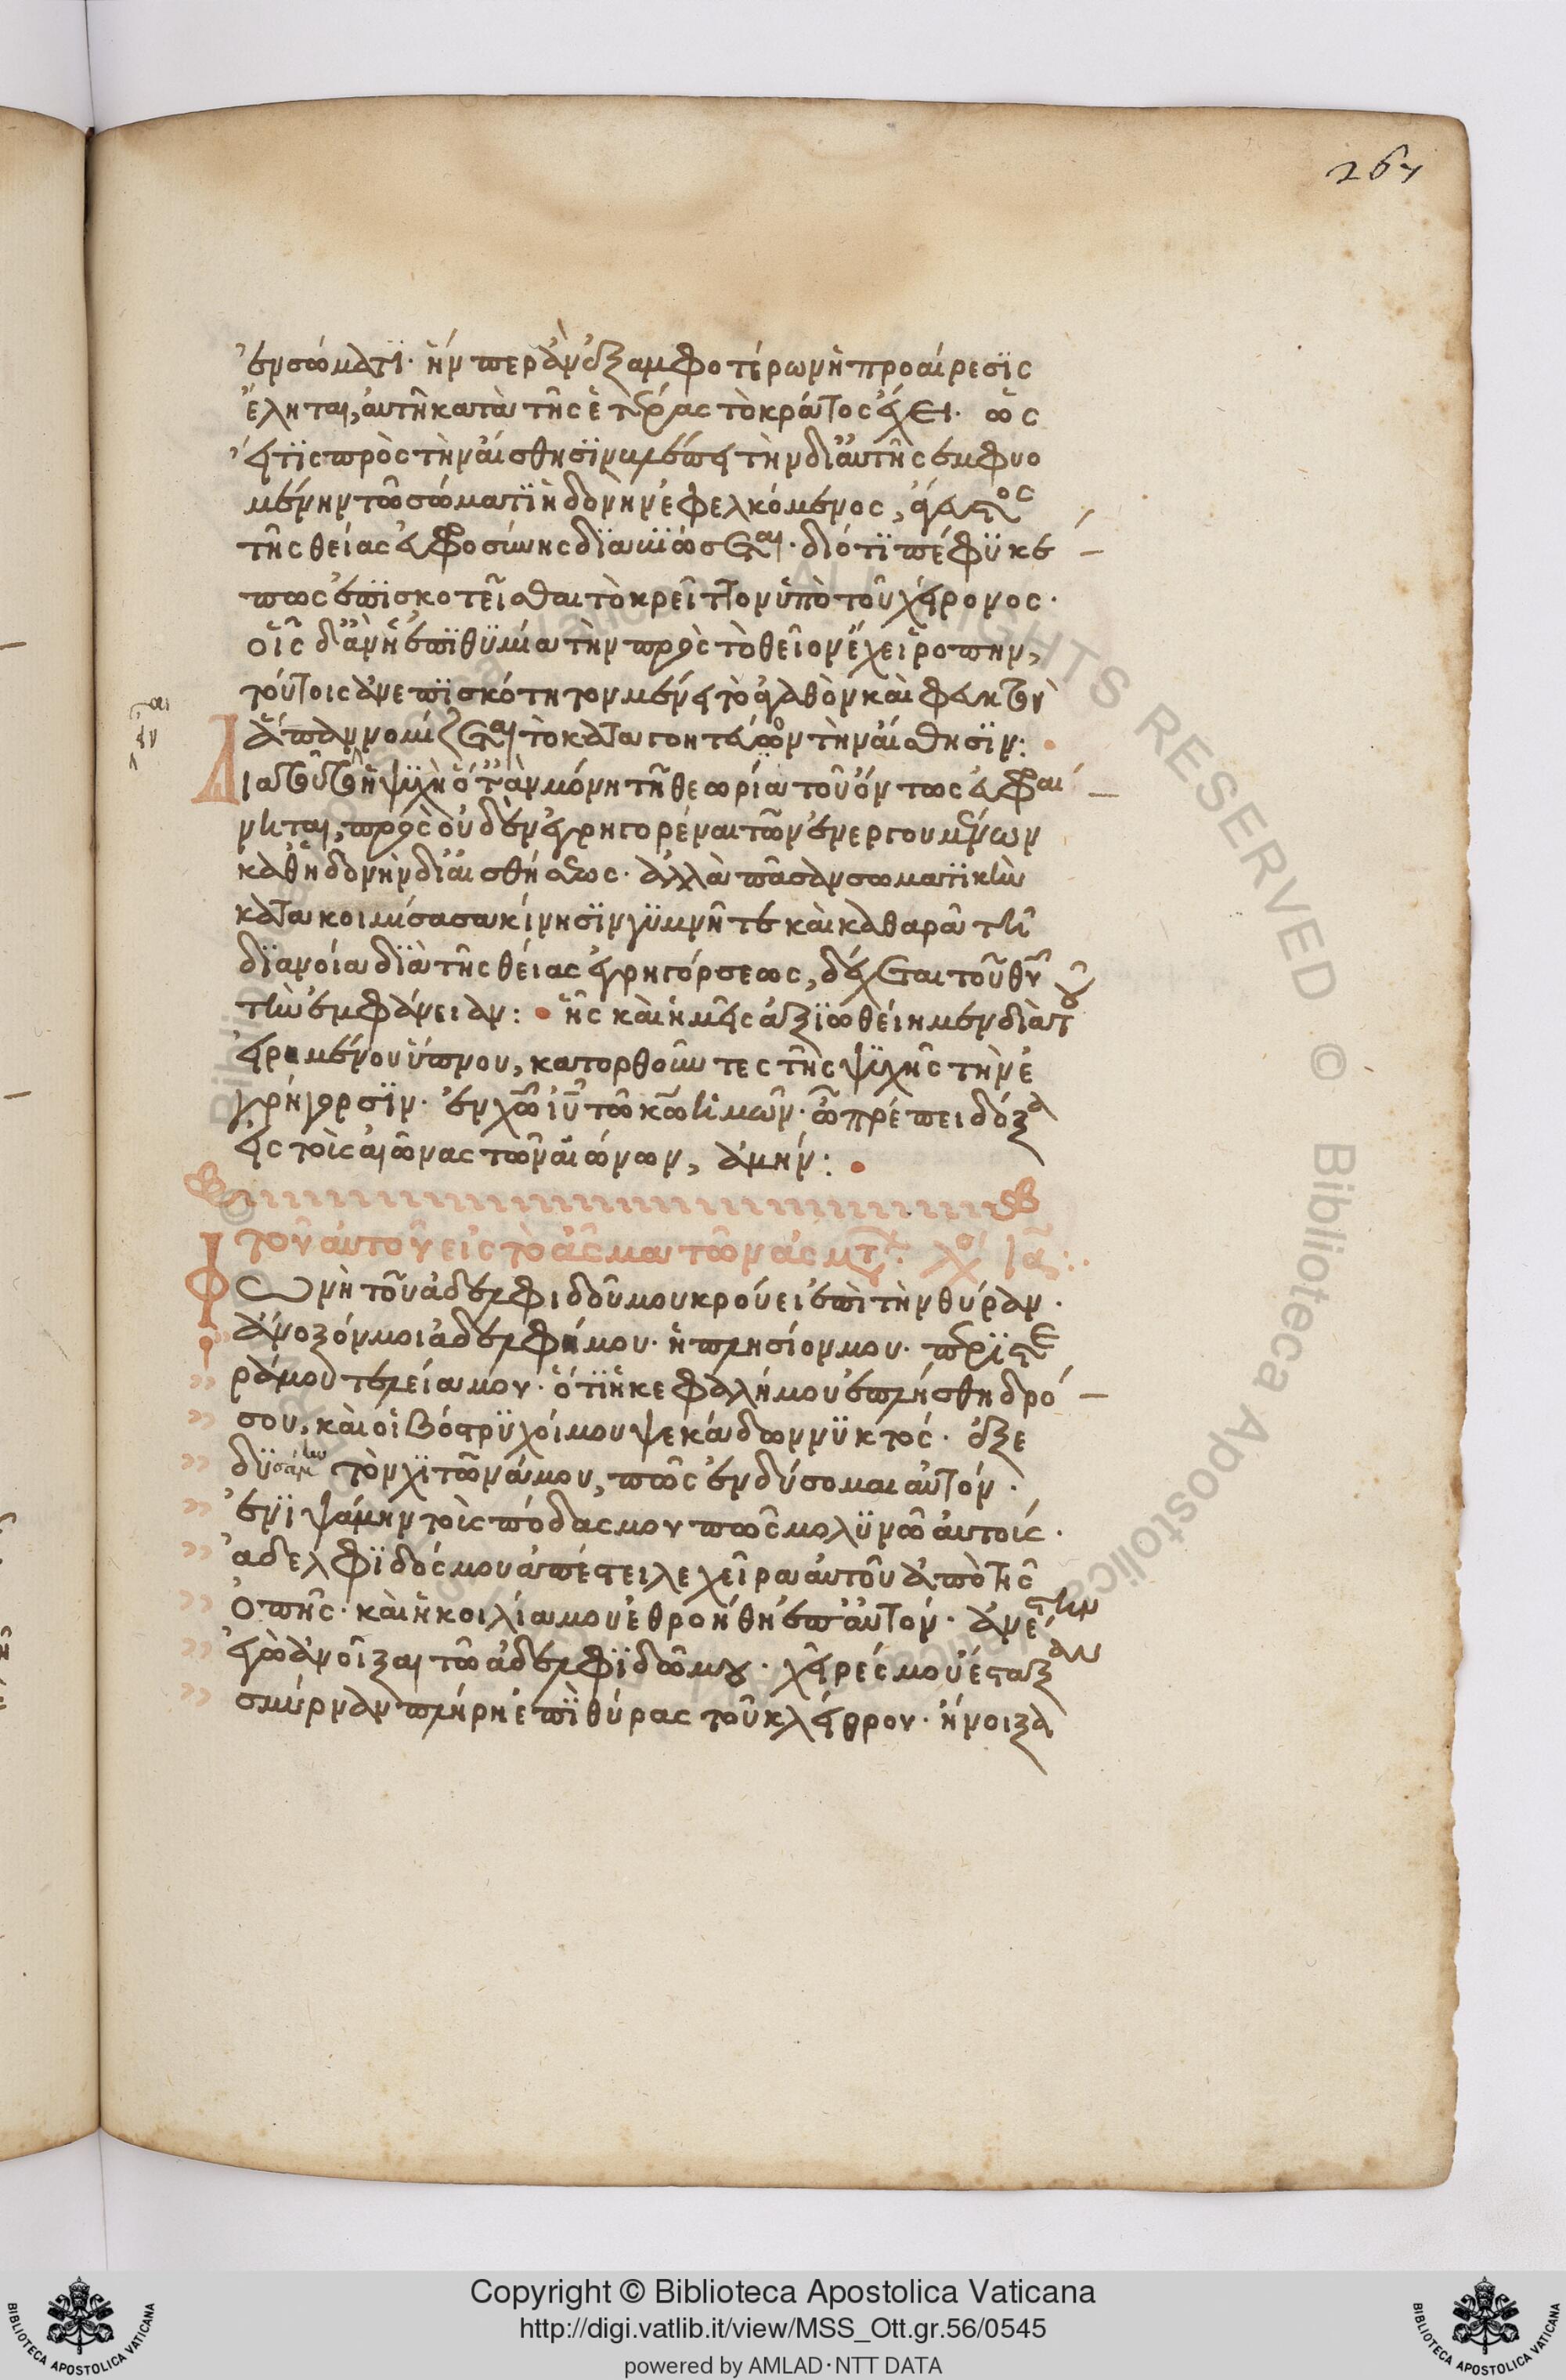 ἐν σώματι· ἥνπερ ἂν ἐξ ἀμφοτέρων ἡ προαίρεσις
ἕληται, αὐτὴ κατὰ τῆς ἑτέρας τὸ κράτος ἔχει· ὡς
εἴ τις πρὸς τὴν αἴσθησιν βλέπει τὴν δι' αὐτῆς ἐμφυο
μένην τῶ σώματι ἡδονὴν ἐφελκόμενος, ἄγευστος
τῆς θείας εὐφροσύνης διαβιώσεται· διότι πέφυκέ
πως ἐπισκοτεῖσθαι τὸ κρεῖττον ὑπὸ τοῦ χείρονος·
οἷς δ' ἂν ἡ ἐπιθυμία τὴν πρὸς τὸ θεῖον ἔχει ῥοπὴν,
τούτοις ἀνεπισκότητον μένει τὸ ἀγαθὸν καὶ φευκτὸν
ἅπαν νομίζεται τὸ καταγοητεῦον τὴν αἴσθησιν:
Διατοῦτο ἡ ψυχὴ ὅταν μόνη τῆ θεωρία τοῦ ὄντως εὐφραί
νηται, πρὸς οὐδὲν ἐγρηγορέναι τῶν ἐνεργουμένων
καθ' ἡδονὴν δι' αἰσθήσεως· ἀλλὰ πᾶσαν σωματικὴν
κατακοιμίσασα κίνησιν γυμνῆ τε καὶ καθαρᾶ τῆ
διανοία διὰ τῆς θείας ἐγρηγόρσεως, δέχεται τοῦ θυ
τὴν ἐμφάνειαν: ἧς καὶ ἡμεῖς ἀξιωθείημεν διὰ τοῦ
εἰρημένου ὕπνου, κατορθοῦντες τῆς ψυχῆς τὴν ἐ
γρήγορσιν· ἐν χῶ ιυ τῶ κω ἡμῶν· ὧ πρέπει δόξα
εἰς τοὺς αἰῶνας τῶν αἰώνων, ἀμήν:
τοῦ αὐτοῦ εἰς τὸ ἆσμα τῶν ἀσμάτ· λόγ ια:
Φωνὴ τοῦ ἀδελφιδοῦ μου κρούει ἐπὶ τὴν θύραν·
ἄνοιξόν μοι ἀδελφή μου· ἡ πλησίον μου· περιστε
ρά μου τελεία μου· ὅτι ἡ κεφαλή μου ἐπλήσθη δρό
σου, καὶ οἱ βόστρυχοί μου ψεκάδων νυκτός· ἐξε
δυσάμην τὸν χιτῶνά μου, πῶς ἐνδύσομαι αὐτόν·
ἐνιψάμην τοὺς πόδας μου πῶς μολυνῶ αὐτούς·
ἀδελφιδός μου ἀπέστειλε χεῖρα αὐτοῦ ἀπὸ τῆς
ὀπῆς· καὶ ἡ κοιλία μου ἐθροήθη ἐπ' αὐτόν· ἀνέστην
ἐγὼ ἀνοῖξαι τῶ ἀδελφιδῶ μου· χεῖρές μου ἔσταξαν
σμύρναν πλήρη ἐπὶ θύρας τοῦ κλείθρου· ἤνοιξα
Copyright © Biblioteca Apostolica Vaticana
http://digi.vatlib.it/view/MSS_Ott.gr.56/0545
powered by AMLAD·NTT DATA